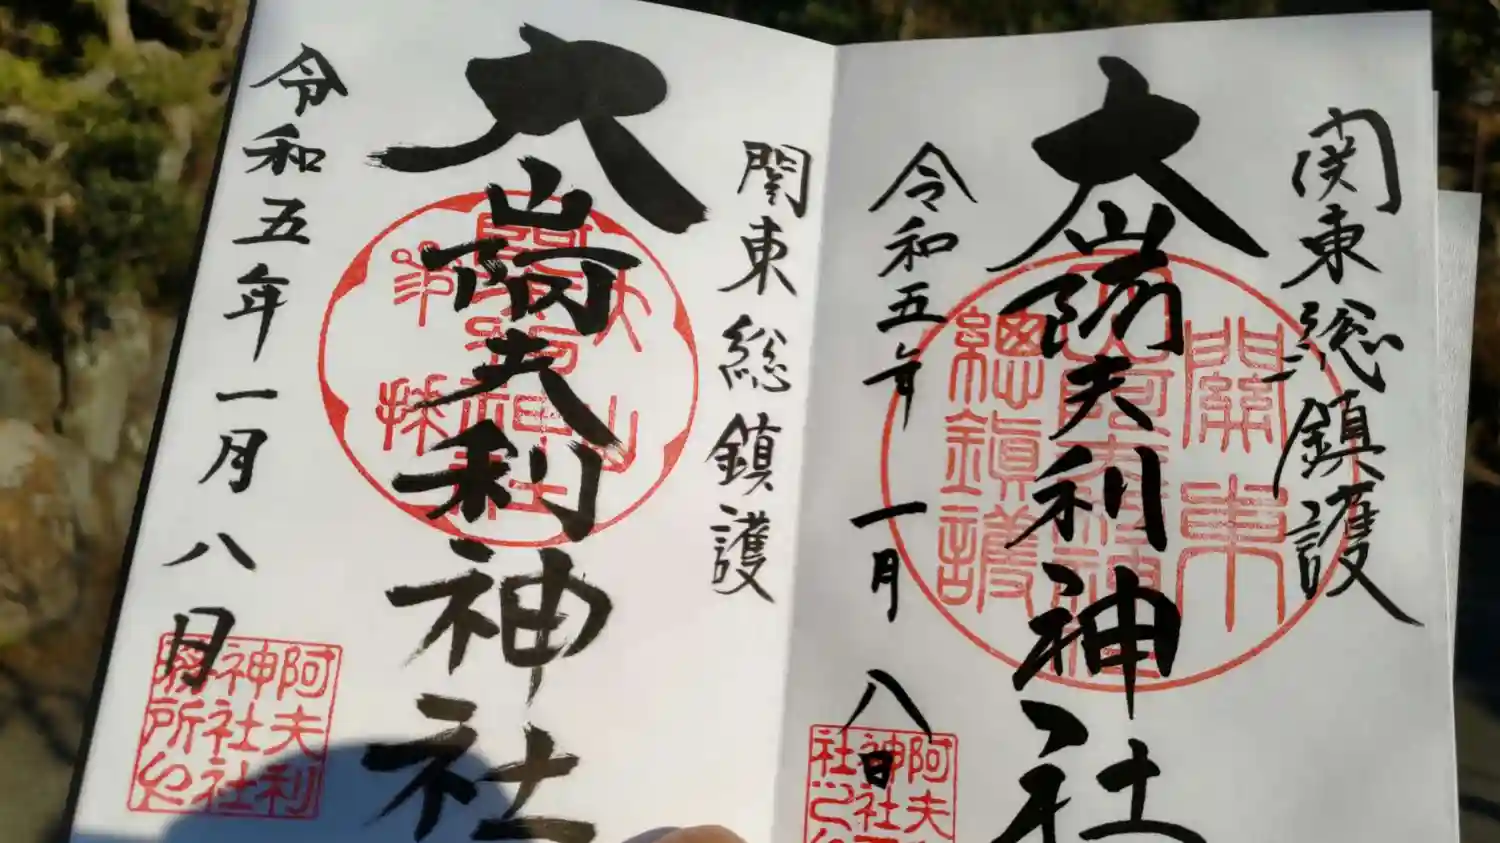 関東総鎮護
大山阿夫利神社
令和五年一月八日
關東
總鎮護
阿夫
神社
関東総鎮護
大山阿夫利神社
令和五年一月八日
阿夫利
神社社
務所印